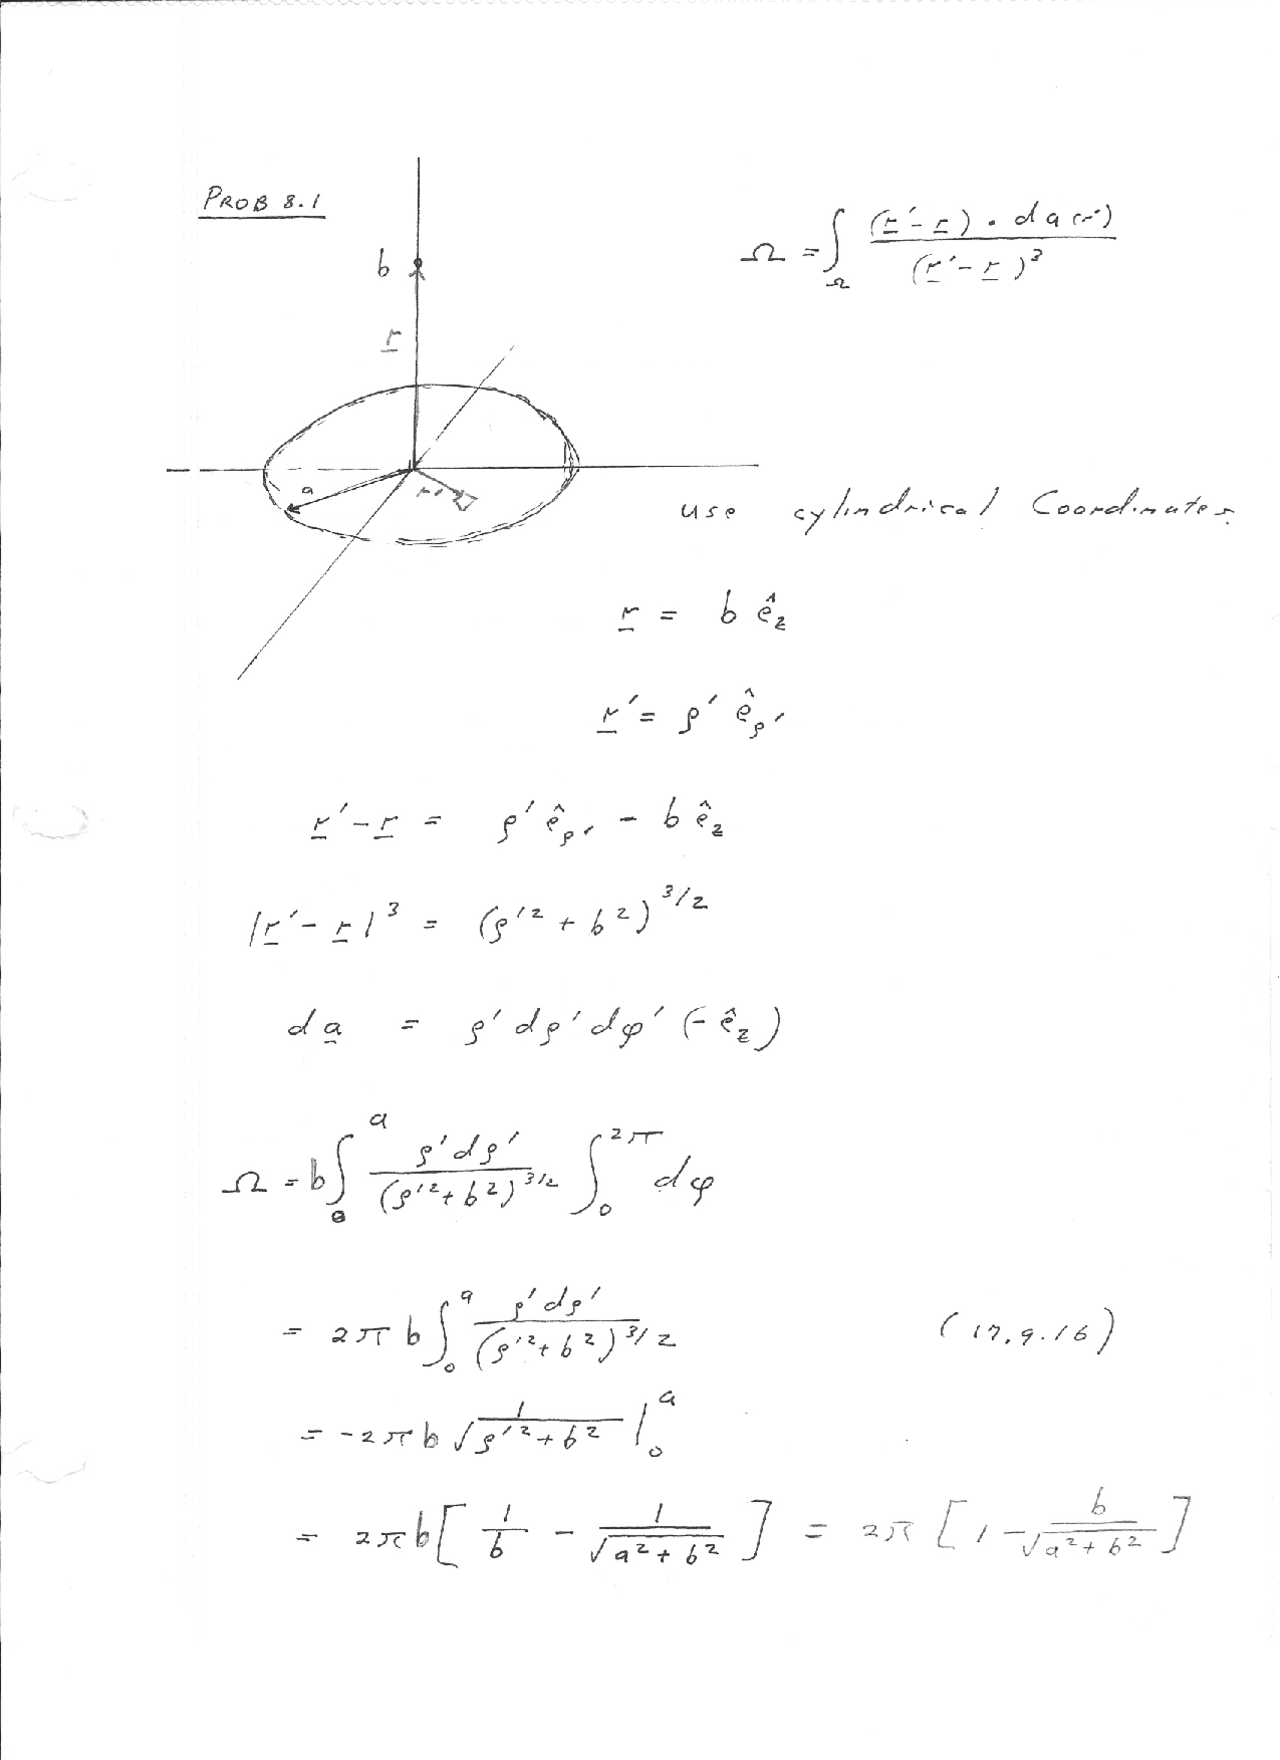 PROB 8.1
Ω = ∫_Ω (r' - r) · da(r') / (r' - r)^3
b
r
a
r'
use cylindrical Coordinates.
r = b ê_z
r' = ρ' ê_ρ'
r' - r = ρ' ê_ρ' - b ê_z
|r' - r|^3 = (ρ'^2 + b^2)^3/2
da = ρ' dρ' dφ' (-ê_z)
Ω = b ∫_0^a ρ'dρ' / (ρ'^2 + b^2)^3/2 ∫_0^2π dφ
= 2π b ∫_0^a ρ'dρ' / (ρ'^2 + b^2)^3/2 (17.9.16)
= -2π b 1/√(ρ'^2 + b^2) |_0^a
= 2π b [ 1/b - 1/√(a^2 + b^2) ] = 2π [ 1 - b/√(a^2 + b^2) ]